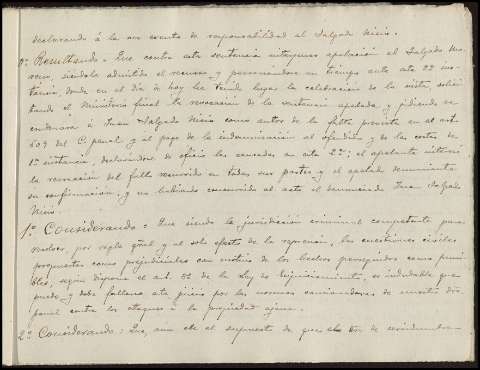 declarando á la vez exento de responsabilidad al Salgado Nisio.
5º Resultando - Que contra esta sentencia interpuso apelación el Salgado
siéndole admitido el recurso y personándose en tiempo ante esta 2ª ins-
tancia, donde en el día de hoy ha tenido lugar la celebración de la vista, solici-
tando el Ministerio fiscal la revocación de la sentencia apelada y pidiendo se
condenara á Juan Salgado Nisio como autor de la falta prevista en el art.
609 del C. penal y al pago de la indemnización al ofendido y de las costas de
1ª instancia, declarándose de oficio las causadas en esta 2ª; el apelante
la revocación del fallo recurrido en todas sus partes y el apelado denunciante
su confirmación, y no habiendo concurrido al acto el denunciado Juan Salgado
Nisio.
1º Considerando = Que siendo la jurisdicción criminal competente para
resolver, por regla gral. y al solo efecto de la represión, las cuestiones civiles
propuestas como prejudiciales con motivo de los hechos perseguidos como puni-
bles, según dispone el art. de la Ley de Enjuiciamiento, es indudable que
puede y debe fallarse este juicio por las normas de nuestro dro.
penal contra los ataques á la propiedad ajena.
2º Considerando: Que, aun en el supuesto de que